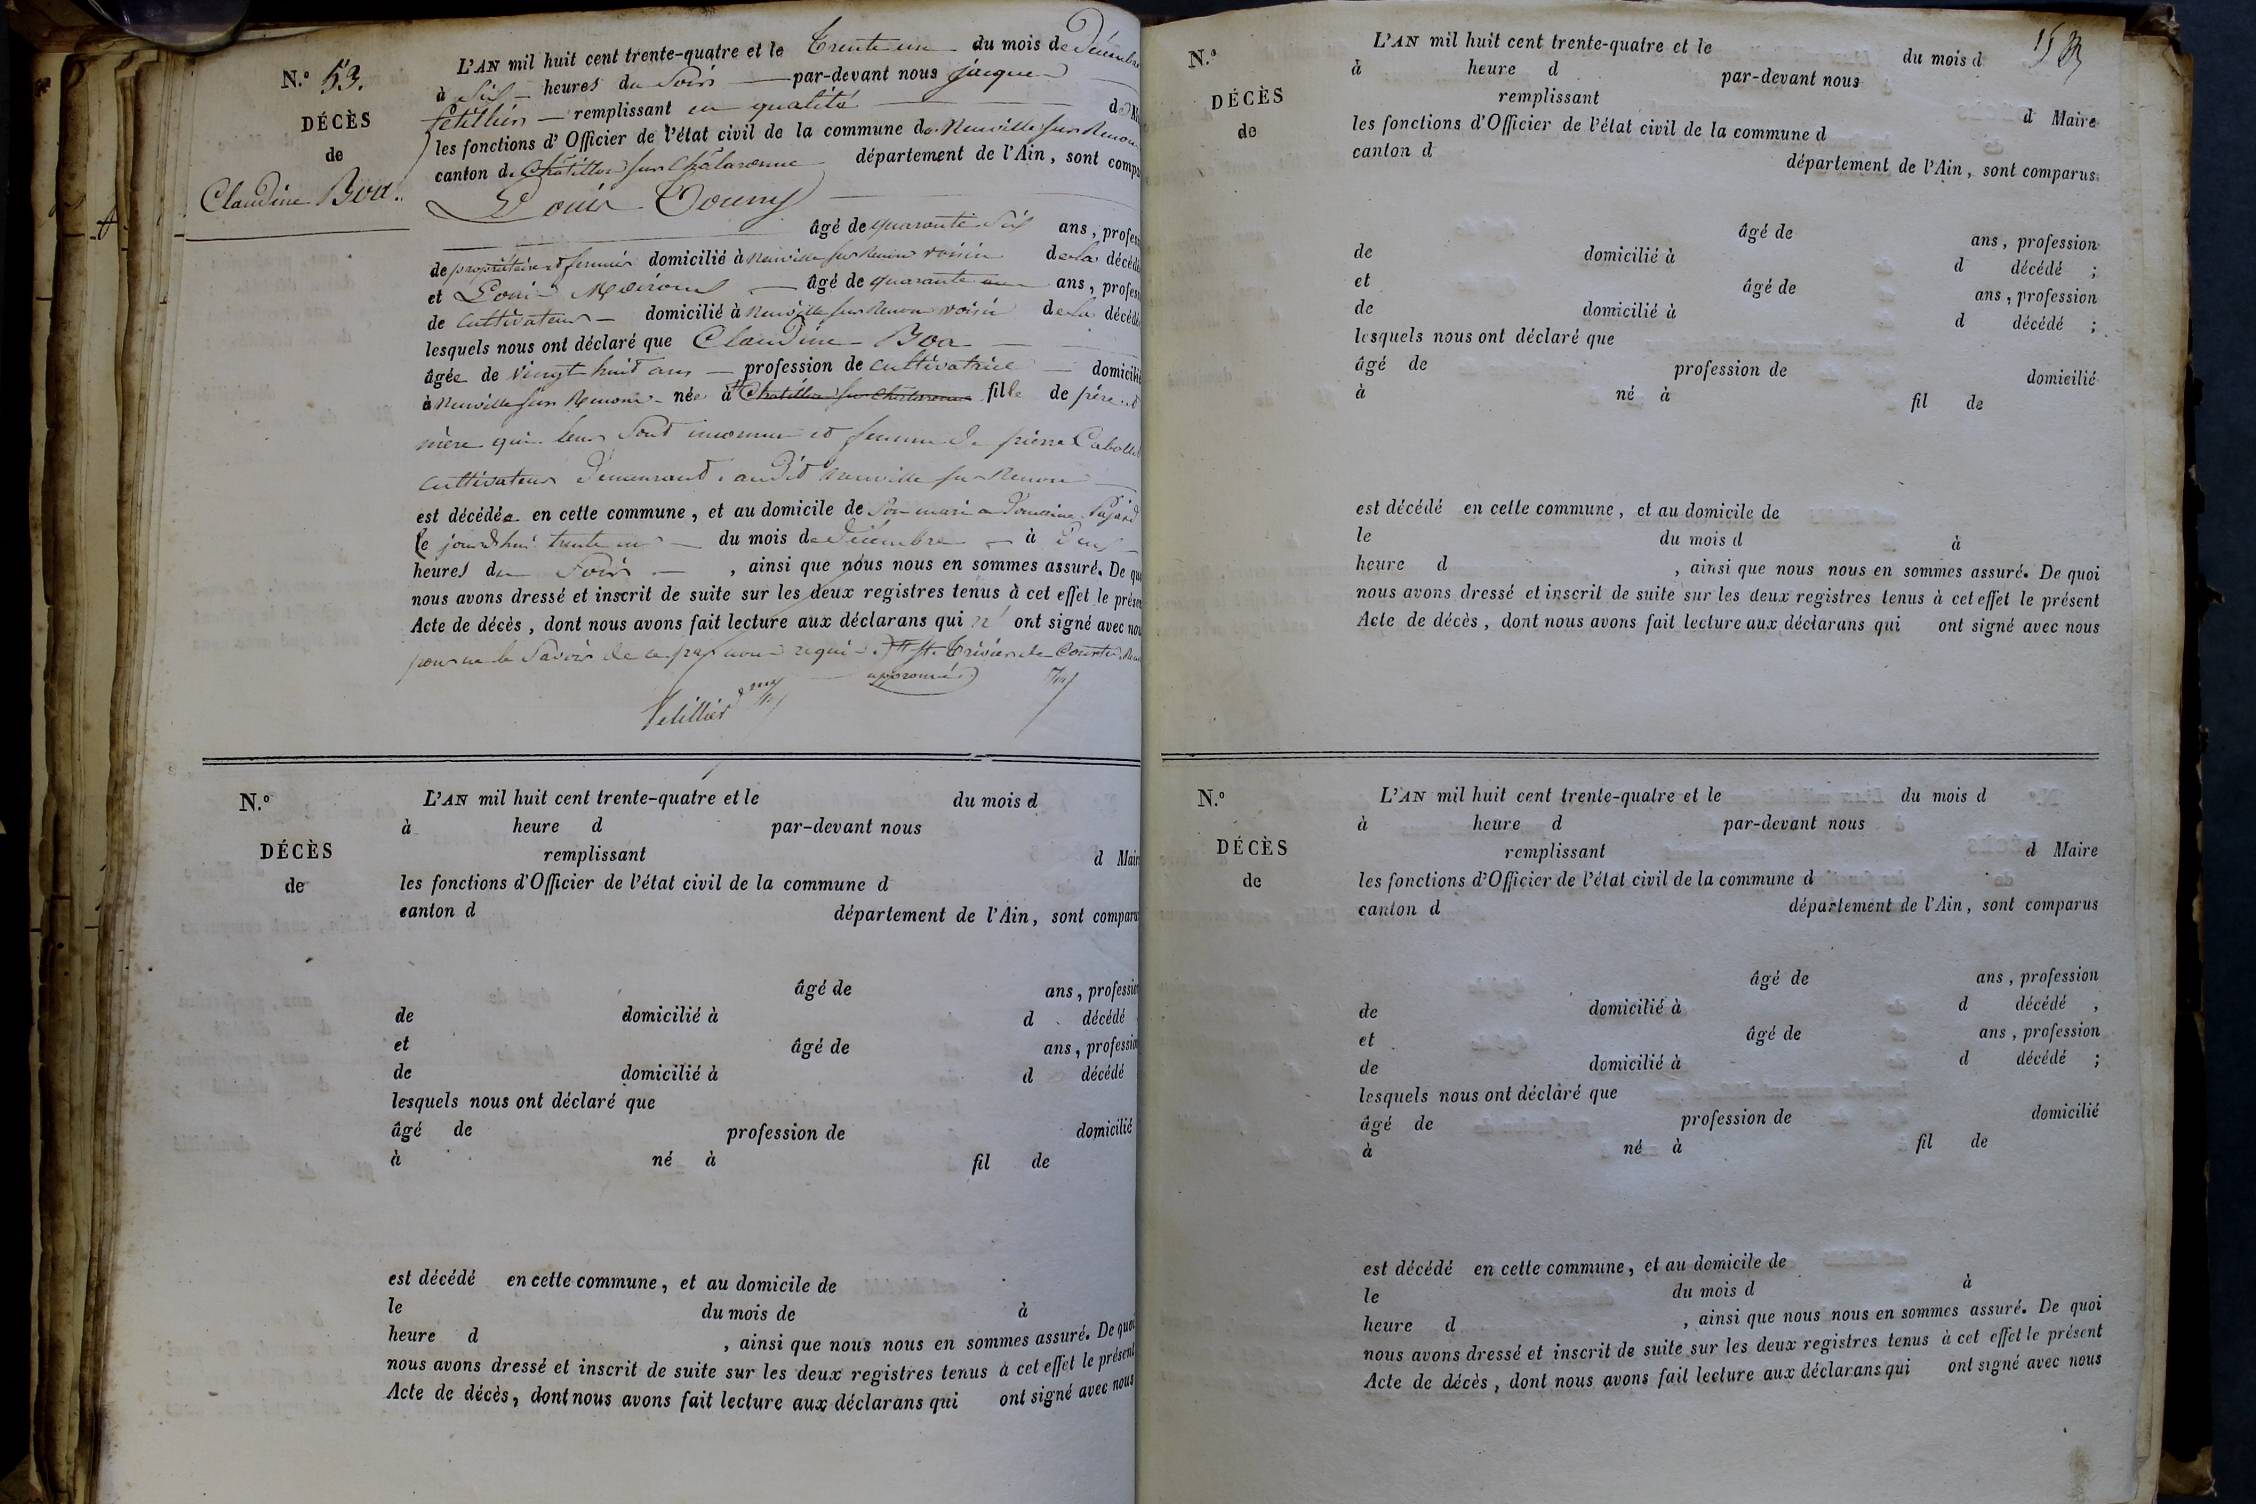 N.o 53.
DÉCÈS
de
Claudine Boa.
L'AN mil huit cent trente-quatre et le trente un du mois de Décembre
à Six heures du Soir par-devant nous jacque
fetillier remplissant en qualité de M
les fonctions d'Officier de l'état civil de la commune de Neuville sur Renon
canton de Châtillon sur Chalaronne département de l'Ain, sont compa
Louis
âgé de quarante Six ans, profess
de propriétaire et fermier domicilié à Neuville sur Renon voisin de la décédé
et Loui âgé de quarante ans, profess
de Cultivateur domicilié à Neuville sur Renon voisin de la décédé
lesquels nous ont déclaré que Claudine Boa
âgée de vingt huit ans profession de cultivatrice domicilié
à Neuville sur Renon née à Chatillon sur Chalaronne fille de père et
mère qui leur Sont inconnu et femme de pierre
cultivateur demeurant audit Neuville sur Renon
est décédée en cette commune, et au domicile de Son mari
le jourd'hui trente un du mois de Décembre à deux
heures du Soir, ainsi que nous nous en sommes assuré. De qu
nous avons dressé et inscrit de suite sur les deux registres tenus à cet effet le prése
Acte de décès, dont nous avons fait lecture aux déclarans qui n' ont signé avec nou
pour ne le Savoir de ce requi St Trivier de Courte
approuvé
fetillier
N.o
DÉCÈS
de
L'AN mil huit cent trente-quatre et le du mois d
à heure d par-devant nous
remplissant d Mair
les fonctions d'Officier de l'état civil de la commune d
canton d département de l'Ain, sont comparu
âgé de ans, professio
de domicilié à d décédé
et âgé de ans, professio
de domicilié à d décédé
lesquels nous ont déclaré que
âgé de profession de domicilié
à né à fil de
est décédé en cette commune, et au domicile de
le du mois de à
heure d , ainsi que nous nous en sommes assuré. De quoi
nous avons dressé et inscrit de suite sur les deux registres tenus à cet effet le présent
Acte de décès, dont nous avons fait lecture aux déclarans qui ont signé avec nous
N.o
DÉCÈS
de
L'AN mil huit cent trente-quatre et le du mois d
à heure d par-devant nous
remplissant d Maire
les fonctions d'Officier de l'état civil de la commune d
canton d département de l'Ain, sont comparus
âgé de ans, profession
de domicilié à d décédé ;
et âgé de ans, profession
de domicilié à d décédé ;
lesquels nous ont déclaré que
âgé de profession de domicilié
à né à fil de
est décédé en cette commune, et au domicile de
le du mois d à
heure d , ainsi que nous nous en sommes assuré. De quoi
nous avons dressé et inscrit de suite sur les deux registres tenus à cet effet le présent
Acte de décès, dont nous avons fait lecture aux déclarans qui ont signé avec nous
N.o
DÉCÈS
de
L'AN mil huit cent trente-quatre et le du mois d
à heure d par-devant nous
remplissant d Maire
les fonctions d'Officier de l'état civil de la commune d
canton d département de l'Ain, sont comparus
âgé de ans, profession
de domicilié à d décédé ,
et âgé de ans, profession
de domicilié à d décédé ;
lesquels nous ont déclaré que
âgé de profession de domicilié
à né à fil de
est décédé en cette commune, et au domicile de
le du mois d à
heure d , ainsi que nous nous en sommes assuré. De quoi
nous avons dressé et inscrit de suite sur les deux registres tenus à cet effet le présent
Acte de décès, dont nous avons fait lecture aux déclarans qui ont signé avec nous